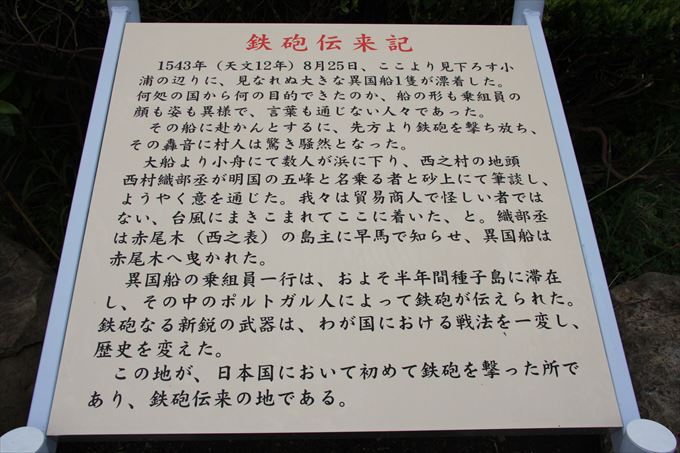 鉄砲伝来記
1543年（天文12年）8月25日、ここより見下ろす小
浦の辺りに、見なれぬ大きな異国船1隻が漂着した。
何処の国から何の目的できたのか、船の形も乗組員の
顔も姿も異様で、言葉も通じない人々であった。
その船に赴かんとするに、先方より鉄砲を撃ち放ち、
その轟音に村人は驚き騒然となった。
大船より小舟にて数人が浜に下り、西之村の地頭
西村織部丞が明国の五峰と名乗る者と砂上にて筆談し、
ようやく意を通じた。我々は貿易商人で怪しい者では
ない、台風にまきこまれてここに着いた、と。織部丞
は赤尾木（西之表）の島主に早馬で知らせ、異国船は
赤尾木へ曳かれた。
異国船の乗組員一行は、およそ半年間種子島に滞在
し、その中のポルトガル人によって鉄砲が伝えられた。
鉄砲なる新鋭の武器は、わが国における戦法を一変し、
歴史を変えた。
この地が、日本国において初めて鉄砲を撃った所で
あり、鉄砲伝来の地である。